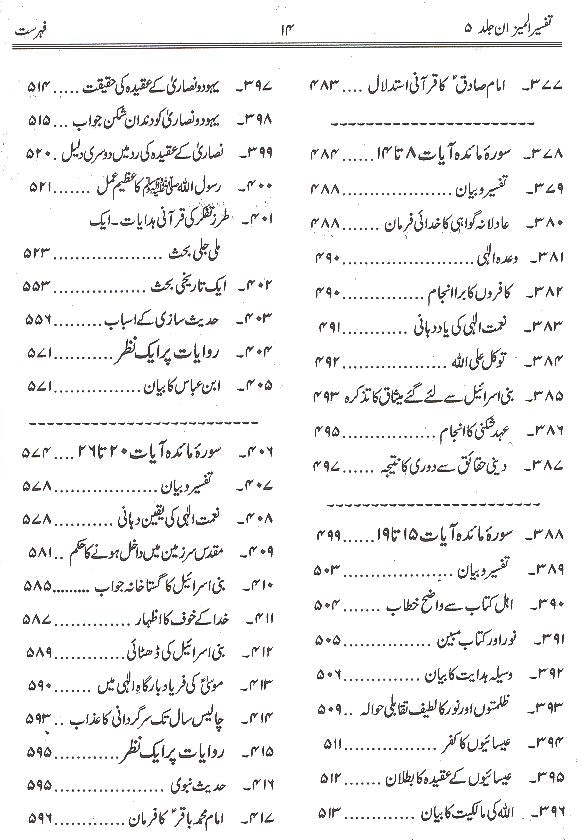 تفسیر المیزان جلد ۵
۱۴
فہرست
۳۷۷۔ امام صادقؑ کا قرآنی استدلال .... ۴۸۳
۳۷۸۔ سورۂ مائدہ آیات ۸ تا ۱۴ ...... ۴۸۴
۳۷۹۔ تفسیر و بیان .................... ۴۸۸
۳۸۰۔ عادلانہ گواہی کا خدائی فرمان ...... ۴۸۸
۳۸۱۔ وعدہ الٰہی ...................... ۴۹۰
۳۸۲۔ کافروں کا برا انجام ............... ۴۹۰
۳۸۳۔ نعمت الٰہی کی یاد دہانی ............. ۴۹۱
۳۸۴۔ توکل علی اللہ ................... ۴۹۲
۳۸۵۔ بنی اسرائیل سے لئے گئے میثاق کا تذکرہ ۴۹۳
۳۸۶۔ عہد شکنی کا انجام ................ ۴۹۵
۳۸۷۔ دینی حقائق سے دوری کا نتیجہ ...... ۴۹۷
۳۸۸۔ سورۂ مائدہ آیات ۱۵ تا ۱۹ ...... ۴۹۹
۳۸۹۔ تفسیر و بیان .................... ۵۰۳
۳۹۰۔ اہل کتاب سے واضح خطاب ....... ۵۰۴
۳۹۱۔ نور اور کتاب مبین .............. ۵۰۵
۳۹۲۔ وسیلہ ہدایت کا بیان ............. ۵۰۶
۳۹۳۔ ظلمتوں اور نور کا لطیف تقابلی حوالہ .. ۵۰۹
۳۹۴۔ عیسائیوں کا کفر ................ ۵۱۱
۳۹۵۔ عیسائیوں کے عقیدہ کا بطلان ...... ۵۱۲
۳۹۶۔ اللہ کی مالکیت کا بیان ............ ۵۱۳
۳۹۷۔ یہود و نصاریٰ کے عقیدہ کی حقیقت ..... ۵۱۴
۳۹۸۔ یہود و نصاریٰ کو دندان شکن جواب ... ۵۱۵
۳۹۹۔ نصاریٰ کے عقیدہ کی رد میں دوسری دلیل . ۵۲۰
۴۰۰۔ رسول اللہ ﷺ کا عظیم عمل ........ ۵۲۱
۴۰۱۔ طرز تفکر کی قرآنی ہدایات۔ ایک
ملی جلی بحث .................... ۵۲۳
۴۰۲۔ ایک تاریخی بحث ................ ۵۵۳
۴۰۳۔ حدیث سازی کے اسباب .......... ۵۵۶
۴۰۴۔ روایات پر ایک نظر .............. ۵۷۱
۴۰۵۔ ابن عباس کا بیان ............... ۵۷۱
۴۰۶۔ سورۂ مائدہ آیات ۲۰ تا ۲۶ .... ۵۷۴
۴۰۷۔ تفسیر و بیان .................. ۵۷۸
۴۰۸۔ نعمت الٰہی کی یقین دہانی .......... ۵۷۸
۴۰۹۔ مقدس سرزمین میں داخل ہونے کا حکم .. ۵۸۱
۴۱۰۔ بنی اسرائیل کا گستاخانہ جواب ......... ۵۸۵
۴۱۱۔ خدا کے خوف کا اظہار ............. ۵۸۷
۴۱۲۔ بنی اسرائیل کی ڈھٹائی ............. ۵۸۹
۴۱۳۔ موسیٰؑ کی فریاد بارگاہ الٰہی میں ...... ۵۹۰
۴۱۴۔ چالیس سال تک سرگردانی کا عذاب .. ۵۹۳
۴۱۵۔ روایات پر ایک نظر .............. ۵۹۵
۴۱۶۔ حدیث نبوی .................... ۵۹۵
۴۱۷۔ امام محمد باقرؑ کا فرمان ........... ۵۹۶